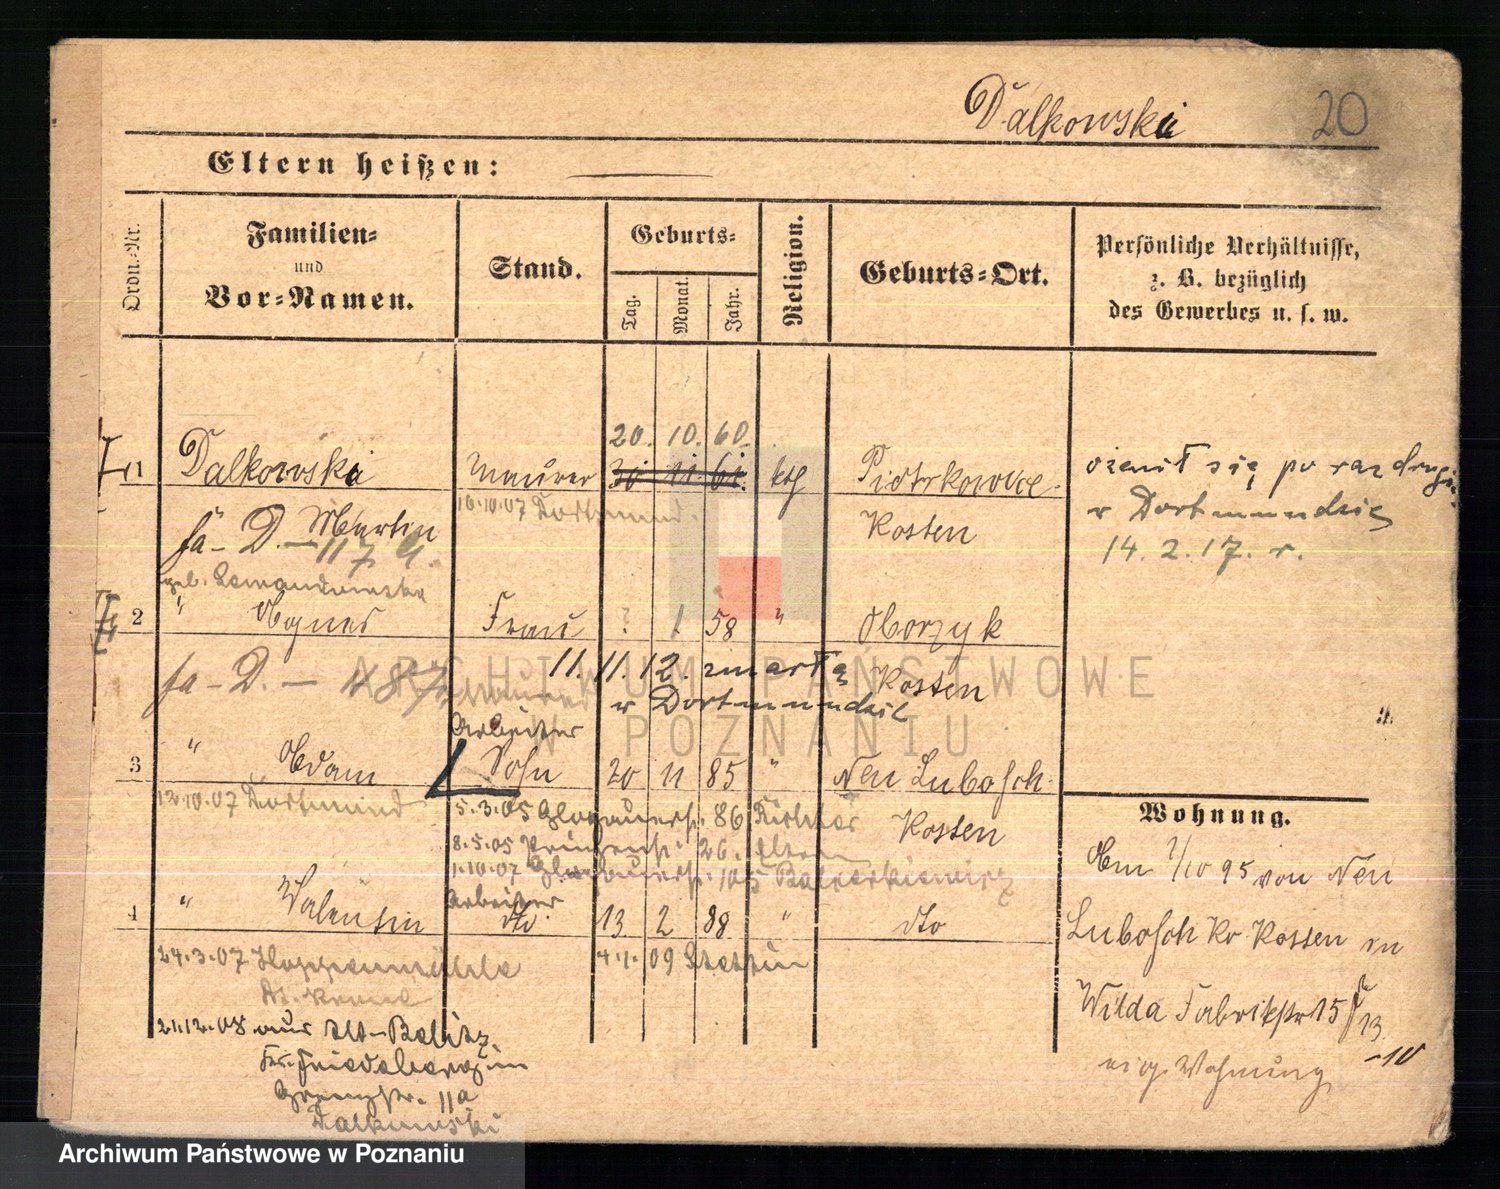 Dalkowski 20
Eltern heißen:
Ordn.-Nr.
Familien-
und
Vor-Namen.
Stand.
Geburts-
Tag.
Monat.
Jahr.
Religion.
Geburts-Ort.
Persönliche Verhältnisse,
z. B. bezüglich
des Gewerbes u. s. w.
20. 10. 60.
1 Dalkowski Maurer 30 11 61. kth Piotrkowice
10.10.07 Dortmund.
Martin Kosten
ożenił się po raz drugi
w Dortmundzie
14. 2. 17. r.
geb.
2 " Agnes Frau ? 1 58 " Oborzyk
11. 11. 12. zmarła Kosten
w Dortmundzie
Maurer
Arbeiter
3 " Adam Sohn 20 11 85 " Neu Lubosch
12.10.07 Dortmund
5.3.05 Glogauerstr. 86 Kosten
8.5.05 26. Eltern
1.10.07 Glogauerstr. 105
Arbeiter
4 " Valentin dto. 13 2 88 " dto
24.3.07
4.1.09 Stettin
21.12.08 aus Alt-Beelitz
Kr. Friedeberg in
Grenzstr. 11a
Dalkowski
Wohnung.
Am 1/10 95 von Neu
Lubosch Kr Kosten in
Wilda Fabrikstr 15
13
-10
eig. Wohnung
ARCHIWUM PAŃSTWOWE
W POZNANIU
Archiwum Państwowe w Poznaniu